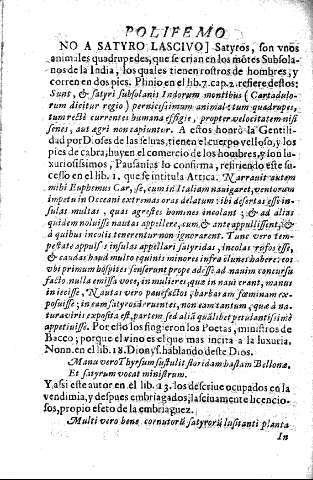 POLIFEMO
NO A SATYRO LASCIVO] Satyros, son vnos
animales quadrupedes, que se crian en los mõtes Subsola-
nos de la India, los quales tienen rostros de hombres, y
corren en dos pies. Plinio en el lib. 7. cap. 2. refiere destos:
Sunt, & satyri subsolanis Indorum montibus (Cartadulo-
rum dicitur regio) pernicissimum animal: tum quadrupes,
tum rectè currentes humana effigie, propter velocitatem nisi
senes, aut ægri non capiuntur. A estos honrò la Gentili-
dad por Dioses de las seluas, tienen el cuerpo velloso, y los
pies de cabra, huyen el comercio de los hombres, y son lu-
xuriosissimos, Pausanias lo confirma, refiriendo este su-
cesso en el lib. 1. que se intitula Attica. Narrauit autem
mihi Euphemus Car, se, cum in Italiam nauigaret, ventorum
impetu in Oceani extremas oras delatum: ibi desertas esse in-
sulas multas, quas agrestes homines incolant; & ad alias
quidem noluisse nautas appellere, cum & ante appulissent, &
a quibus incolis tenerentur non ignorarent. Tunc vero tem-
pestate appulsi: insulas appellari satyridas, incolas rufos esse,
& caudas haud multo equinis minores infra clunes habere: eos
vbi primum hospites senserunt prope adesse ad nauim concursu
facto nulla emissa voce, in mulieres, quæ in naui erant, manus
iniecisse, Nautas vero pauefactos, barbaram fœminam ex-
posuisse; in eam satyros irruentes, non eam tantum, quæ à na-
tura viris exposita est, partem sed aliã quãlibet petulantissimè
appetiuisse. Por esto los fingieron los Poetas, ministros de
Bacco; porque el vino es el que mas incita a la luxuria.
Nonn. en el lib. 18. Dionys. hablando deste Dios.
Manu vero Thyrsum sustulit floridam hastam Bellonæ,
Et satyrum vocat ministrum.
Y assi este autor en el lib. 13. los descriue ocupados en la
vendimia, y despues embriagados; lasciuamente licencio-
sos, propio efeto de la embriaguez.
Multi vero bene cornutorũ satyrorũ lusitanti planta
In